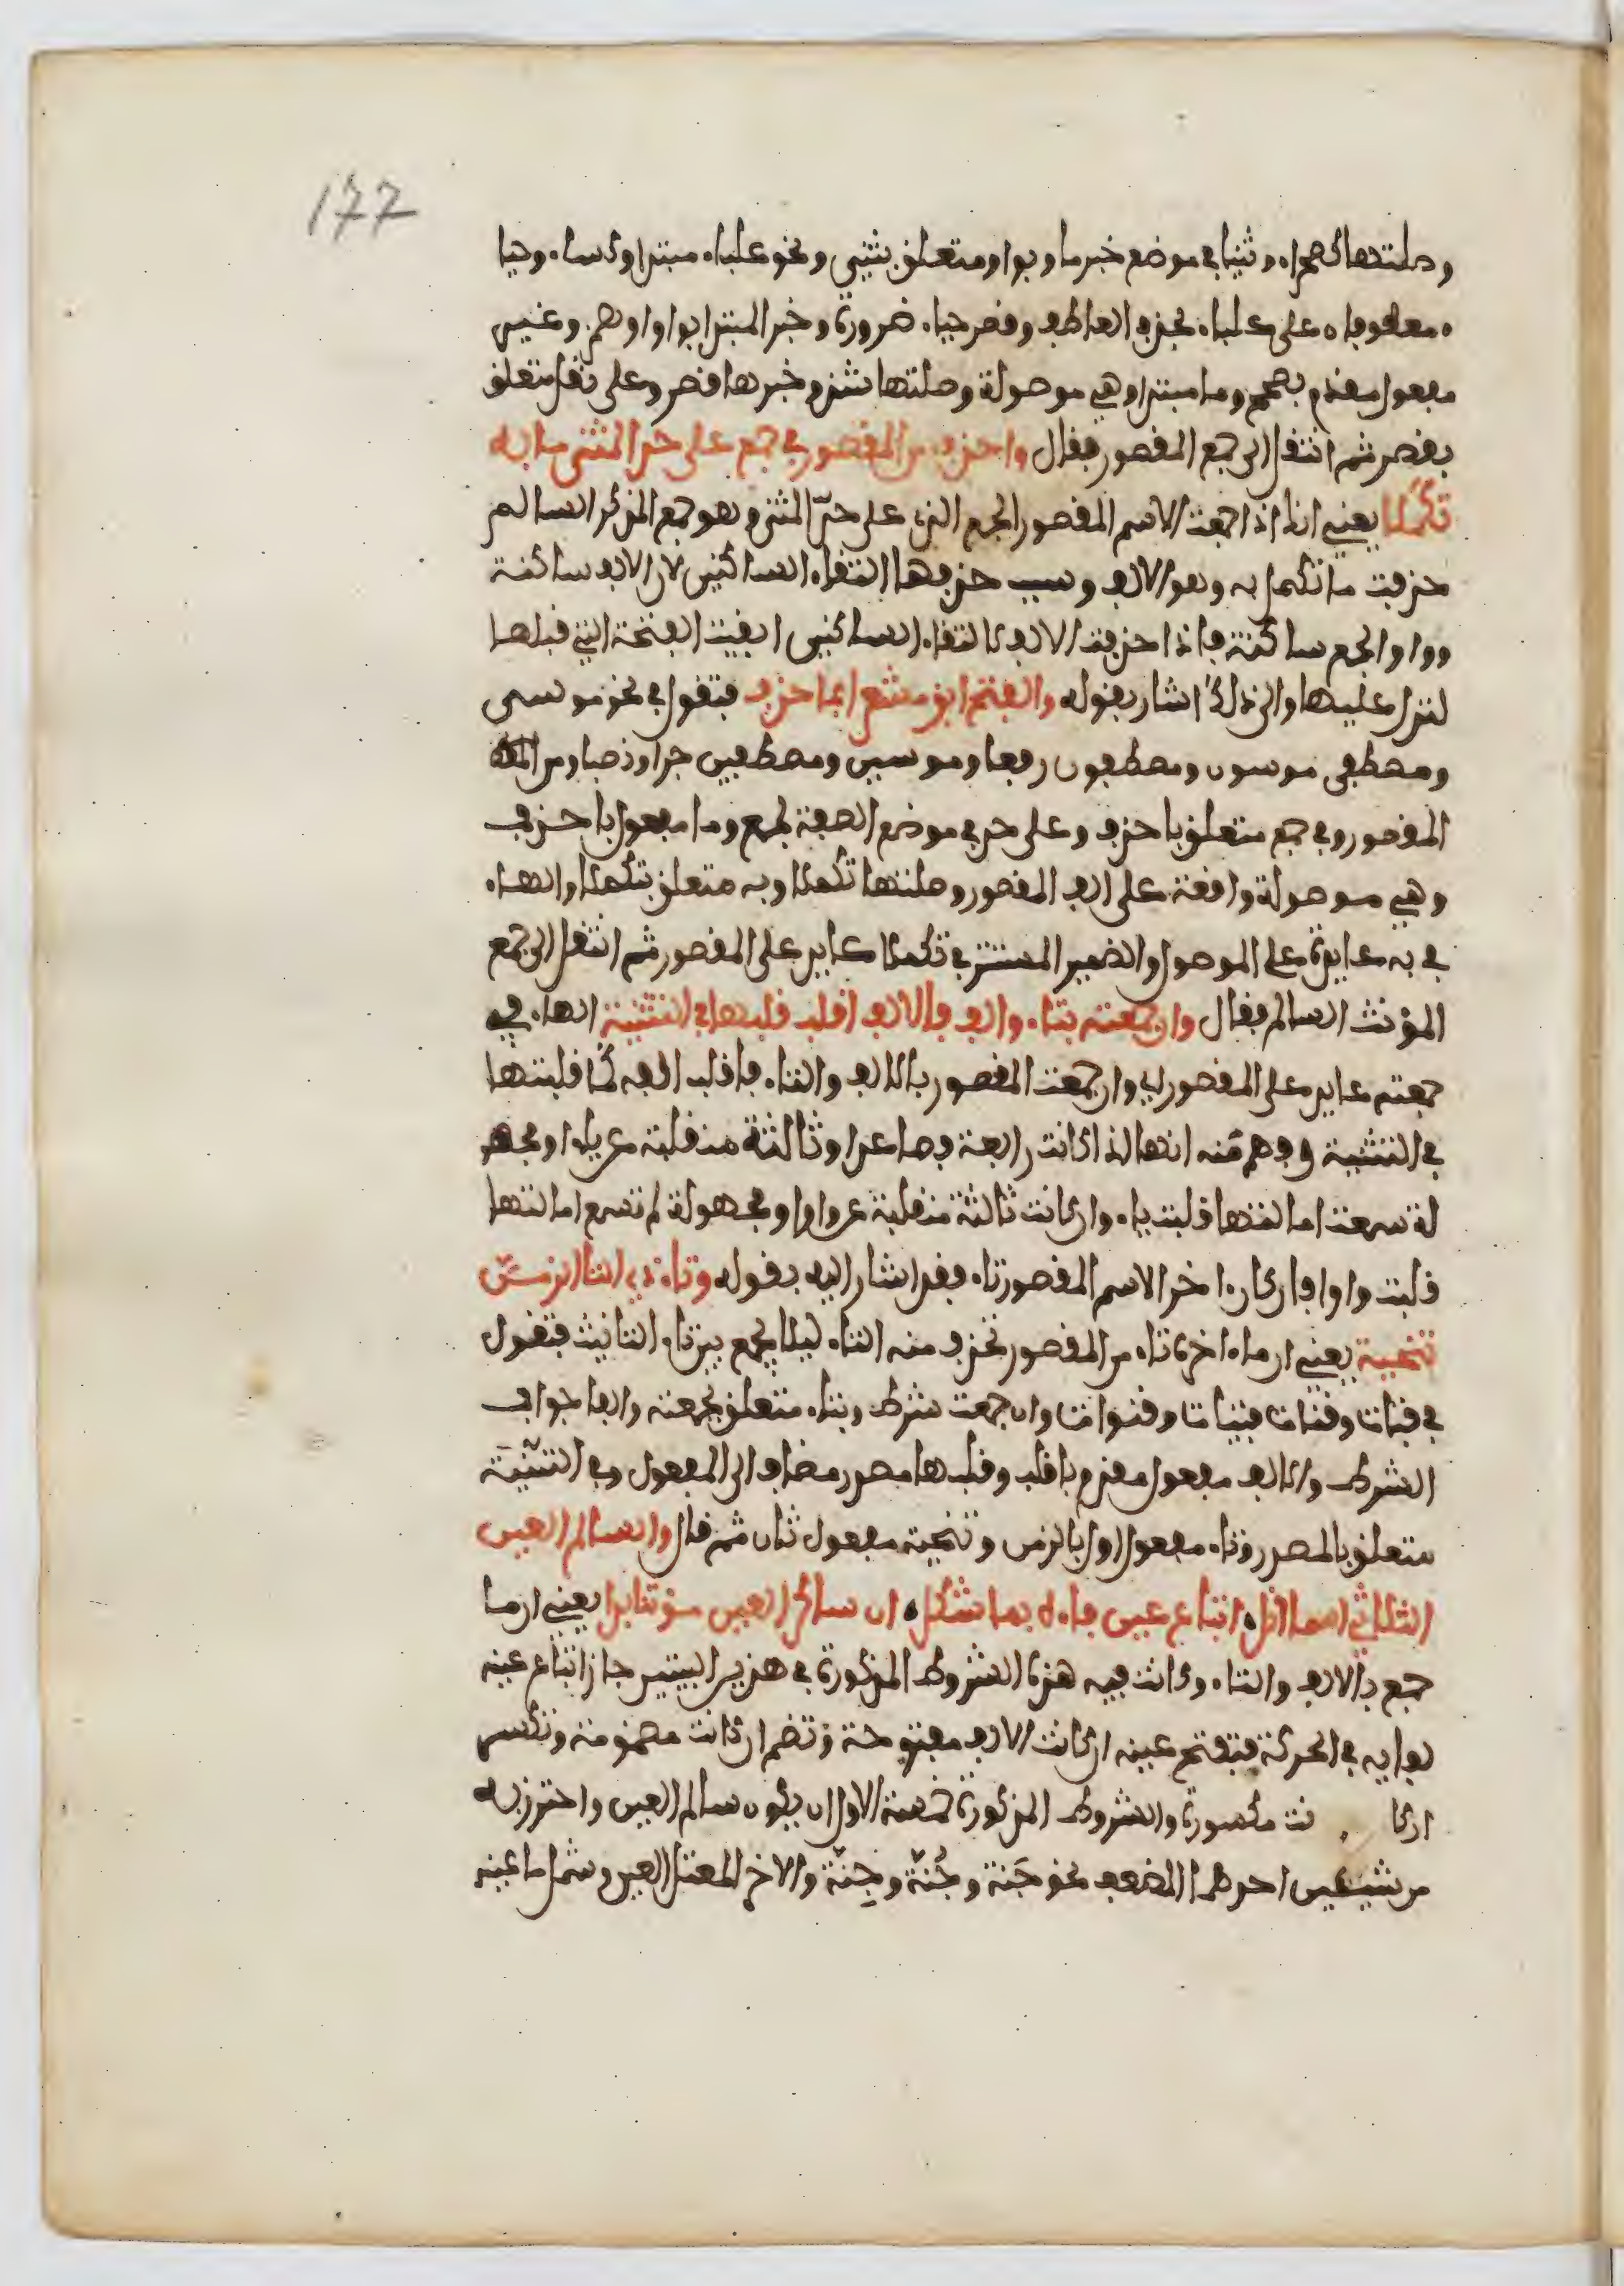 177
وصلتها كصحراء وثنيا في موضع خبر ما وبواو متعلق بثني ونحو علباء مبتدا وكساء وحيا
ء معطوفاه على علباء بحذف العاطف وقصر حياء ضرورة وخبر المبتدا بواو او همز وغير
مفعول مقدم بصحح وما مبتدا وهي موصولة وصلتها شذ وخبرها قصر وعلى نقل متعلق
بقصر ثم انتقل الى جمع المقصور فقال واحذف من المقصور في جمع على حد المثنى ما به
تكملا يعني انك اذا جمعت الاسم المقصور الجمع الذي على حد المثنى وهو جمع المذكر السالم
حذفت ما تكمل به وهو الالف وسبب حذفها التقاء الساكنين لان الالف ساكنة
وواو الجمع ساكنة فاذا حذفت الالف لالتقاء الساكنين ابقيت الفتحة التي قبلها
لتدل عليها والى ذلك اشار بقوله والفتح ابق مشعرا بما حذف فتقول في نحو موسى
ومصطفى موسون ومصطفون رفعا وموسين ومصطفين جرا ونصبا ومن
المقصور وفي جمع متعلق باحذف وعلى حد في موضع الصفة لجمع وما مفعول باحذف
وهي موصولة واقعة على الف المقصور وصلتها تكملا وبه متعلق بتكملا والهاء
في به عايدة على الموصول والضمير المستتر في تكملا عايد على المقصور ثم انتقل الى جمع
المؤنث السالم فقال وان جمعته بتاء والف فالالف اقلب قلبها في التثنية الهاء في
جمعته عايد على المقصور اي وان جمعت المقصور بالالف والتاء فاقلب الفه كما قلبتها
في التثنية وفهم منه انها اذا كانت رابعة فصاعدا وثالثة منقلبة عن ياء او مجهو
لة سمعت امالتها قلبت ياء وان كانت ثالثة منقلبة عن واو او مجهولة لم تسمع امالتها
قلبت واوا فان كان اخر الاسم المقصور تاء فقد اشار اليه بقوله وتاء ذي التا الزمن
تنحية يعني ان ما اخره تاء من المقصور تحذف منه التاء ليلا يجمع بين تاءي التانيث فتقول
في فتات وقنات فتيات وقنوات وان جمعت شرط وبتاء متعلق بجمعته والفا جواب
الشرط والالف مفعول مقدم باقلب وقلبها مصدر مضاف الى المفعول وفي التثنية
متعلق بالمصدر وتاء مفعول اول بالزمن وتنحية مفعول ثان ثم قال والسالم العين
الثلاثي اسما انل اتباع عين فاءه بما شكل ان ساكن العين مؤنثا بدا يعني ان ما
جمع بالالف والتاء وكانت فيه هذه الشروط المذكورة في هذين البيتين جاز اتباع عينه
لفايه في الحركة فتفتح عينه ان كانت الالف مفتوحة وتضم ان كانت مضمومة وتكسر
ان كا نت مكسورة والشروط المذكورة خمسة الاول ان يكون سالم العين واحترز به
من شيئين احدهما المضعف نحو جَنة وجُنّة وجِنّة والاخر المعتل العين وشمل ما عينه